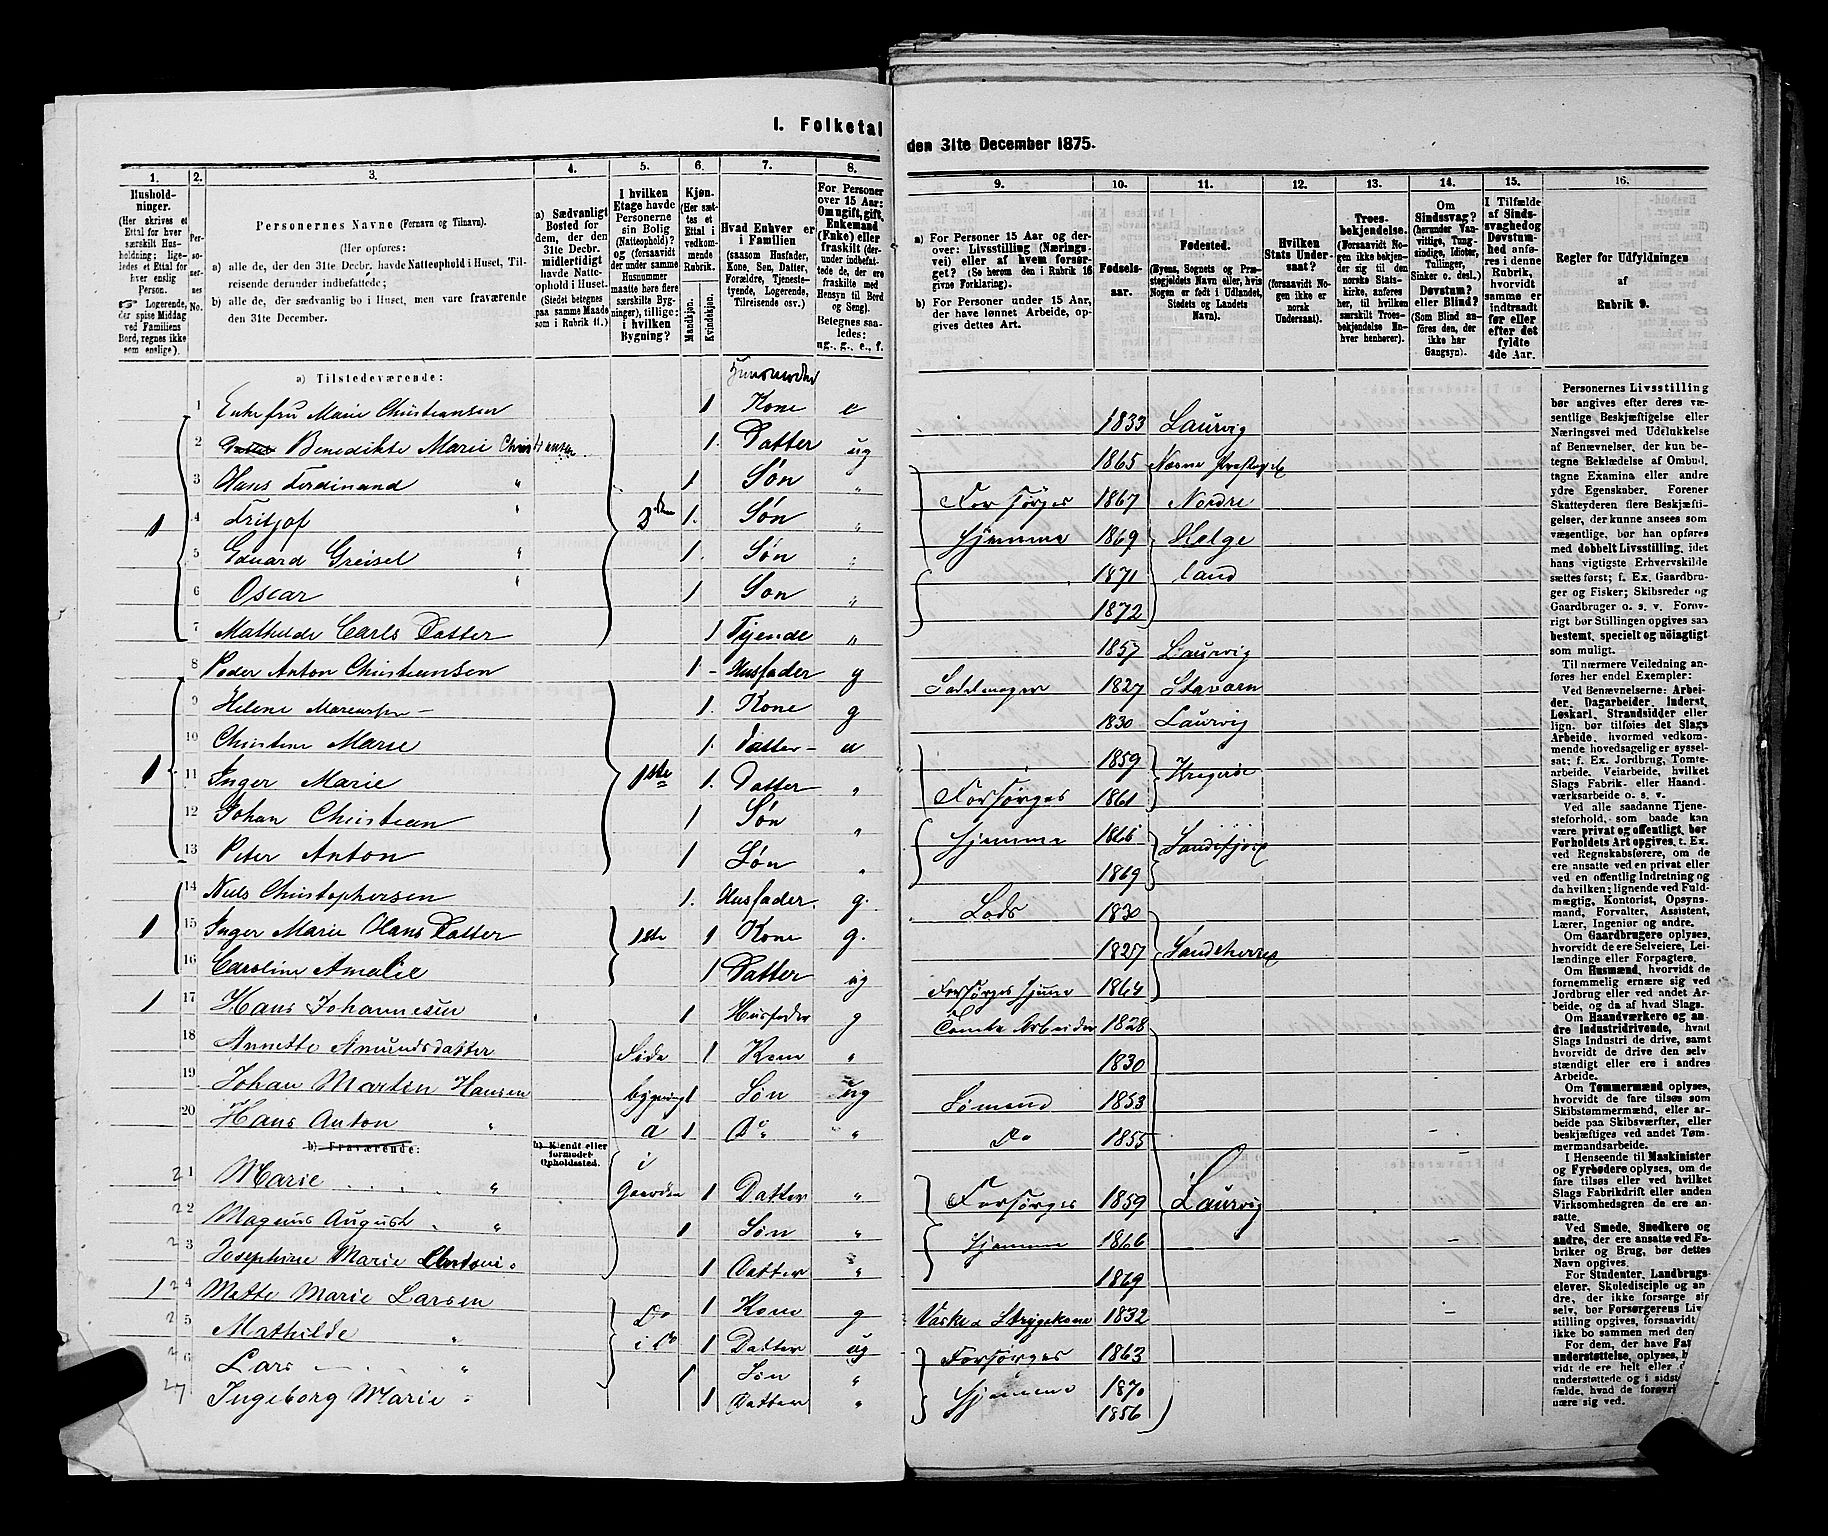 I. Folketal
den 31te December 1875.
1. 2. 3. 4. 5. 6. 7. 8.
Husholdninger. (Her skrives et Ettal for hver særskilt Husholdning; ligeledes et Ettal for hver enslig Person. Logerende, der spise Middag ved Familiens Bord, regnes ikke som enslige).
Personernes No.
Personernes Navne (Fornavn og Tilnavn).
(Her opføres:
a) alle de, der den 31te Decbr. havde Natteophold i Huset, Tilreisende derunder indbefattede;
b) alle de, der sædvanlig bo i Huset, men vare fraværende den 31te December.
a) Sædvanligt Bosted for dem, der den 31te Decbr. midlertidigt havde Natteophold i Huset. (Stedet betegnes paa samme Maade som i Rubrik 11.)
I hvilken Etage havde Personerne sin Bolig (Natteophold)? og (forsaavidt der under samme Husnummer maatte høre flere særskilte Bygninger), tillige: i hvilken Bygning?
Kjøn. (Her sættes et Ettal i vedkommende Rubrik.
Mandkjøn. Kvindekjøn.
Hvad Enhver er i Familien (saasom Husfader, Kone, Søn, Datter, Forældre, Tjenestetyende, Logerende, Tilreisende osv.)
For Personer over 15 Aar: Om ugift, gift, Enkemand (Enke) eller fraskilt (derunder indbefattede de, der ere fraskilte med Hensyn til Bord og Seng). Betegnes saaledes: ug., g., e., f.
9. 10. 11. 12. 13. 14. 15. 16.
a) For Personer 15 Aar og derover: Livsstilling (Næringsvei) eller af hvem forsørget? (Se herom den i Rubrik 16 givne Forklaring).
b) For Personer under 15 Aar, der have lønnet Arbeide, opgives dettes Art.
Fødselsaar.
Fødested. (Byens, Sognets og Præstegjeldets Navn eller, hvis Nogen er født i Udlandet, Stedets og Landets Navn).
Hvilken Stats Undersaat? (forsaavidt Nogen ikke er norsk Undersaat).
Troesbekjendelse. (Forsaavidt Nogen ikke bekjender sig til den norske Statskirke, anføres her hvilken særskilt Troesbekjendelse Enhver henhører).
Om Sindssvag? (herunder Vanvittige, Tungsindige, Idioter, Tullinger, Sinker o. desl.) Døvstum? eller Blind? (Som Blind anføres den, der ikke har Gangsyn).
I Tilfælde af Sindssvaghed og Døvstumhed anføres i denne Rubrik, hvorvidt samme er indtraadt før eller efter det fyldte 4de Aar.
Regler for Udfyldningen af Rubrik 9.
a) Tilstedeværende:
1 Enkefru Marie Christiansen 1 Kone e 1833 Laurvig
2 Benedikte Marie Christiansen 1 Datter ug 1865
3 Hans Ferdinand " 1 Søn " Forsørges 1867 Nordre
1 4 Fritjof " 1 Søn " Hjemme 1869 Helge
5 Eduard Greisel " 1 Søn 1871 land
6 Oscar " 1 Søn " 1872
7 Mathilde Carls Datter 1 Tjende " 1857 Laurvig
8 Peder Anton Christiansen 1 Husfader g Sadelmager 1827 Staværn
9 Helene 1 Kone g 1830 Laurvig
10 Christine Marie 1 Datter u 1859
1 11 Inger Marie 1ste 1 Datter " Forsørges 1861 Kragerøe
12 Johan Christian 1 Søn " Hjemme 1866 Sandefjord
13 Peter Anton 1 Søn " 1869
14 Niels Christophersen 1 Husfader g. Lods 1830
1 15 Inger Marie Hans Datter 1ste 1 Kone g. 1827
16 Caroline Amalie 1 Datter ug Forsørges Hjeme 1864
1 17 Hans Johannesen 1 Husfader g Arbeider 1828
18 Annette Amundsdatter Side 1 Kone " 1830
19 Johan Martin Hansen bygning 1 Søn ug Sømand 1853
20 Hans Anton " a 1 Do " Do 1855
b) Fraværende:
b) Kjendt eller formodet Opholdssted.
i
21 Marie " Gaarden 1 Datter " Forsørges 1859 Laurvig
22 Magnus August " 1 Søn " Hjemme 1866
3 Josephine Marie 1 Datter " 1869
1 24 Mette Marie Larsen Do 1 Kone g Vaske & Strygekone 1832
25 Mathilde " i Do 1 Datter ug Forsørges 1863
26 Lars " 1 Søn " Hjemme 1870
27 Ingeborg Marie " 1 Datter " 1856
Personernes Livsstilling bør angives efter deres væsentlige Beskjæftigelse eller Næringsvei med Udelukkelse af Benævnelser, der kun betegne Beklædelse af Ombud, tagne Examina eller andre ydre Egenskaber. Forener Skatteyderen flere Beskjæftigelser, der kunne ansees som væsentlige, bør han opføres med dobbelt Livsstilling, idet hans vigtigste Erhvervskilde sættes først; f. Ex. Gaardbruger og Fisker; Skibsreder og Gaardbruger o. s. v. Forøvrigt bør Stillingen opgives saa bestemt, specielt og nøiagtigt som muligt.
Til nærmere Veiledning anføres her endel Exempler:
Ved Benævnelserne: Arbeider, Dagarbeider, Inderst, Løskarl, Strandsidder eller lign. bør tilføies det Slags Arbeide, hvormed vedkommende hovedsagelig er sysselsat; f. Ex. Jordbrug, Tomtearbeide, Veiarbeide, hvilket Slags Fabrik- eller Haandværksarbeide o. s. v.
Ved alle saadanne Tjenesteforhold, som baade kan være privat og offentligt, bør Forholdets Art opgives, t. Ex. ved Regnskabsførere, om de ere ansatte ved en privat eller ved en offentlig Indretning og da hvilken; lignende ved Fuldmægtig, Kontorist, Opsynsmand, Forvalter, Assistent, Lærer, Ingeniør og andre.
Om Gaardbrugere oplyses, hvorvidt de ere Selveiere, Leilændinge eller Forpagtere.
Om Husmænd, hvorvidt de fornemmelig ernære sig ved Jordbrug eller ved andet Arbeide, og da af hvad Slags.
Om Haandværkere og andre Industridrivende, hvad Slags Industri de drive, samt hvorvidt de drive den selvstændigt eller ere i andres Arbeide.
Om Tømmermænd oplyses, hvorvidt de fare tilsøs som Skibstømmermænd, eller arbeide paa Skibsværfter, eller beskjæftiges ved andet Tømmermandsarbeide.
I Henseende til Maskinister og Fyrbødere oplyses, om de fare tilsøs eller ved hvilket Slags Fabrikdrift eller anden Virksomhedsgren de ere ansatte.
Ved Smede, Snedkere og andre, der ere ansatte ved Fabriker og Brug, bør dettes Navn opgives.
For Studenter, Landbrugselever, Skoledisciple og andre, der ikke forsørge sig selv, bør Forsørgerens Livsstilling opgives, forsaavidt